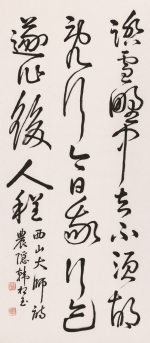 踏雪野中去不須胡
亂行今日我行跡
遂作後人程
西山大師詩
農隱韓玉